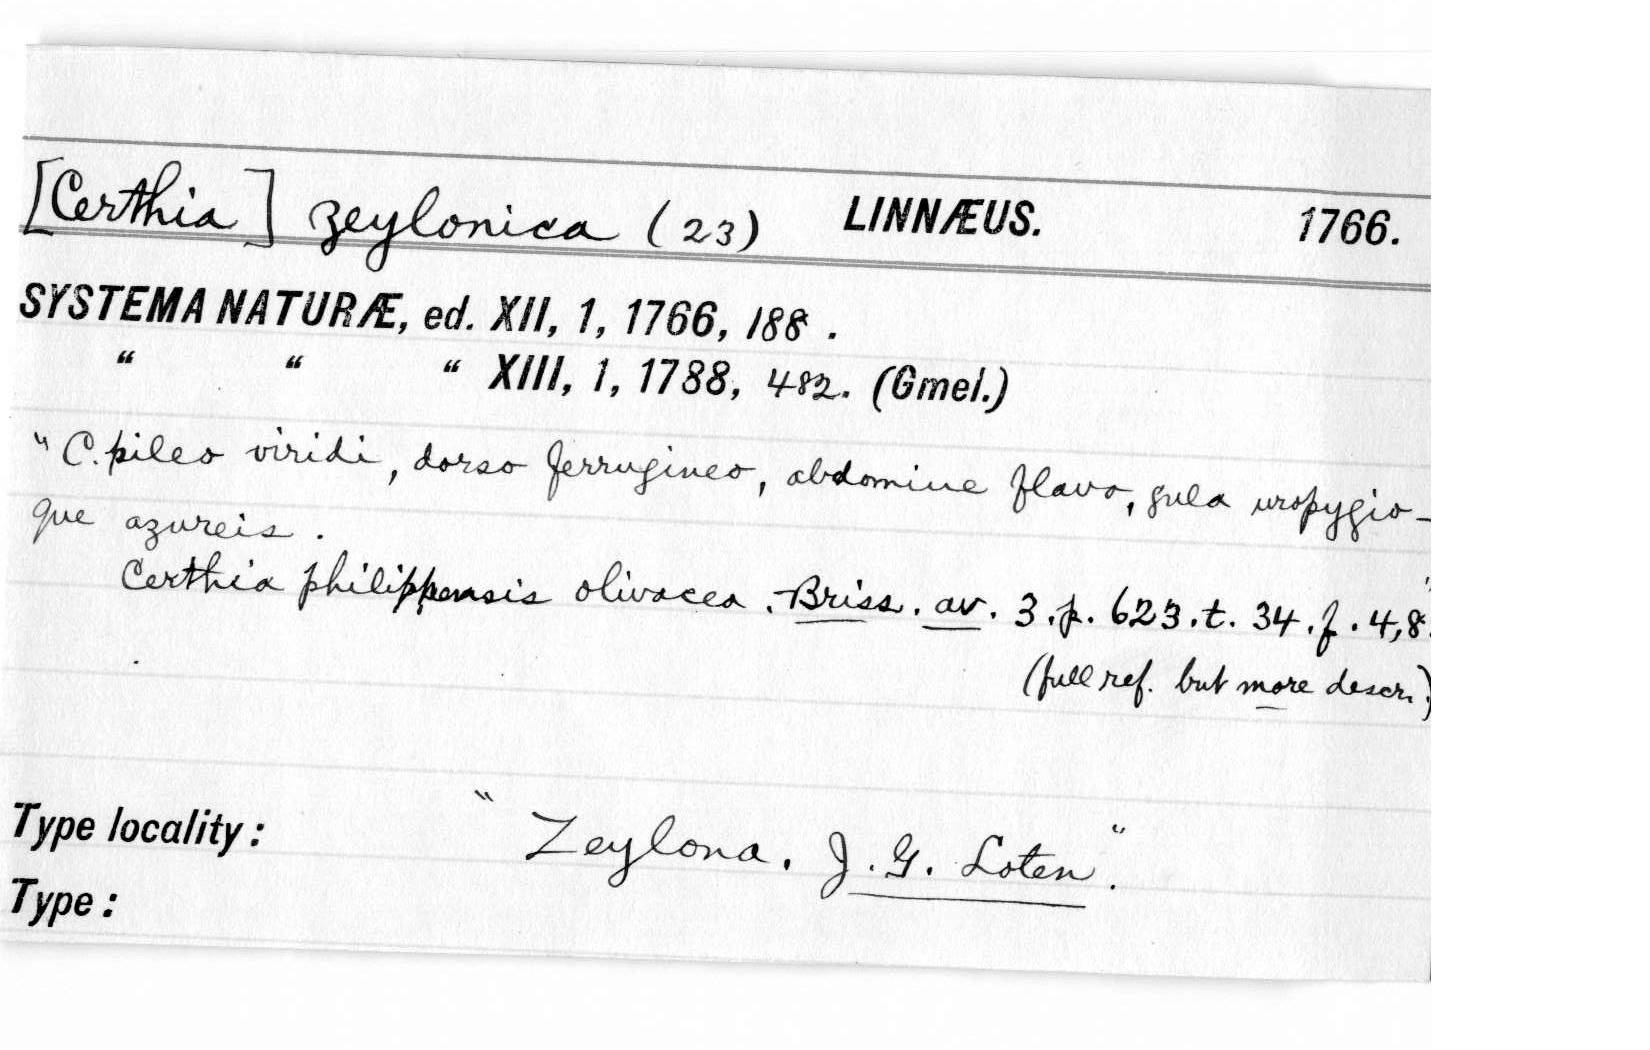 [Certhia] zeylonica (23) LINNÆUS. 1766.
SYSTEMA NATURÆ, ed. XII, 1, 1766, 188 .
“ “ “ XIII, 1, 1788, 482. (Gmel.)
“C. pileo viridi, dorso ferrugineo, abdomine flavo, gula uropygio-
que azureis .
Certhia philippensis olivacea . Briss. av. 3.p. 623.t. 34.f. 4,8."
(full ref. but more descr.)
Type locality: “Zeylona. J. G. Loten."
Type: